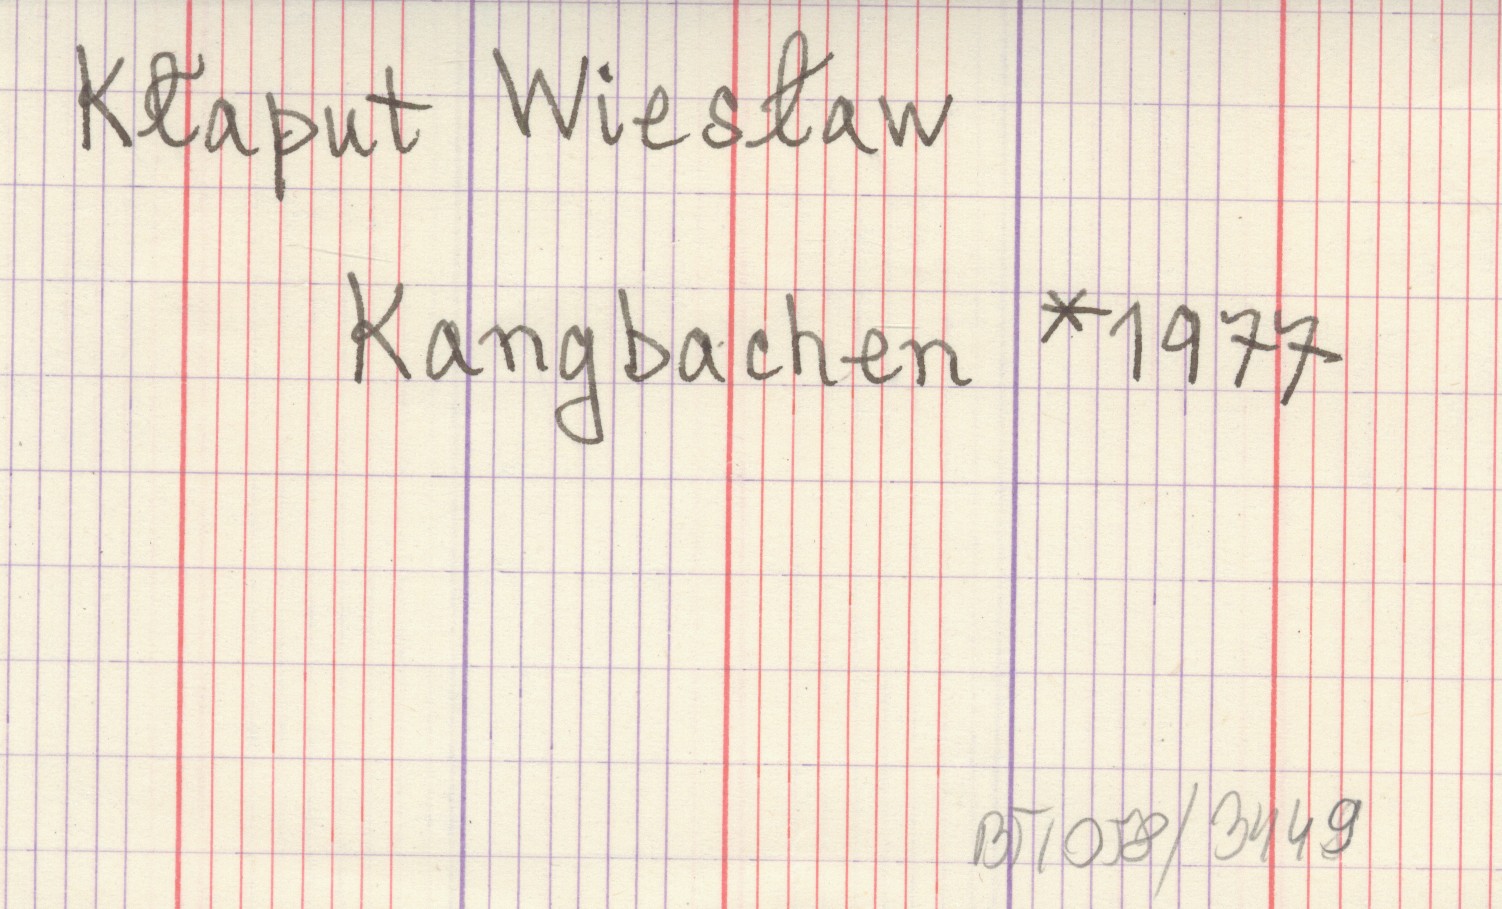 Kłaput Wiesław
Kangbachen *1977
BT1058/3449